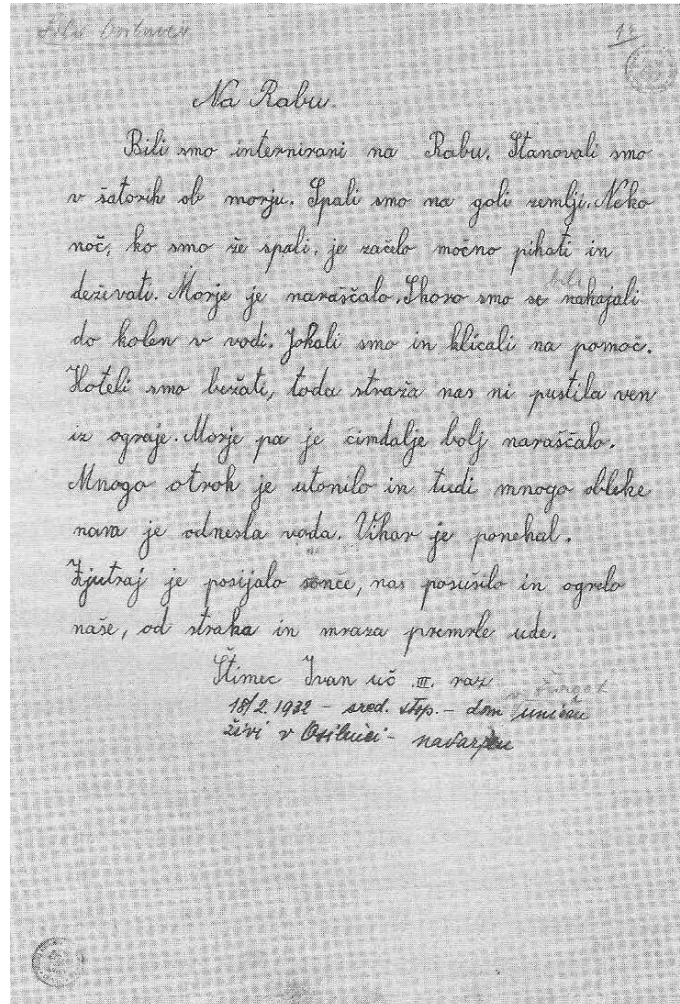 12
Na Rabu.
Bili smo internirani na Rabu. Stanovali smo
v šatorih ob morju. Spali smo na goli zemlji. Neko
noč, ko smo že spali, je začelo močno pihati in
deževati. Morje je naraščalo. Skoro smo se bili nahajali
do kolen v vodi. Jokali smo in klicali na pomoč.
Hoteli smo bežati, toda straža nas ni pustila ven
iz ograje. Morje pa je čimdalje bolj naraščalo.
Mnogo otrok je utonilo in tudi mnogo obleke
nam je odnesla voda. Vihar je ponehal.
Zjutraj je posijalo sonce, nas posušilo in ogrelo
naše, od straha in mraza premrle ude.
Štimec Ivan uč. III. raz
18/2. 1932 – sred. stop. – dom uničen
živi v Osilnici –